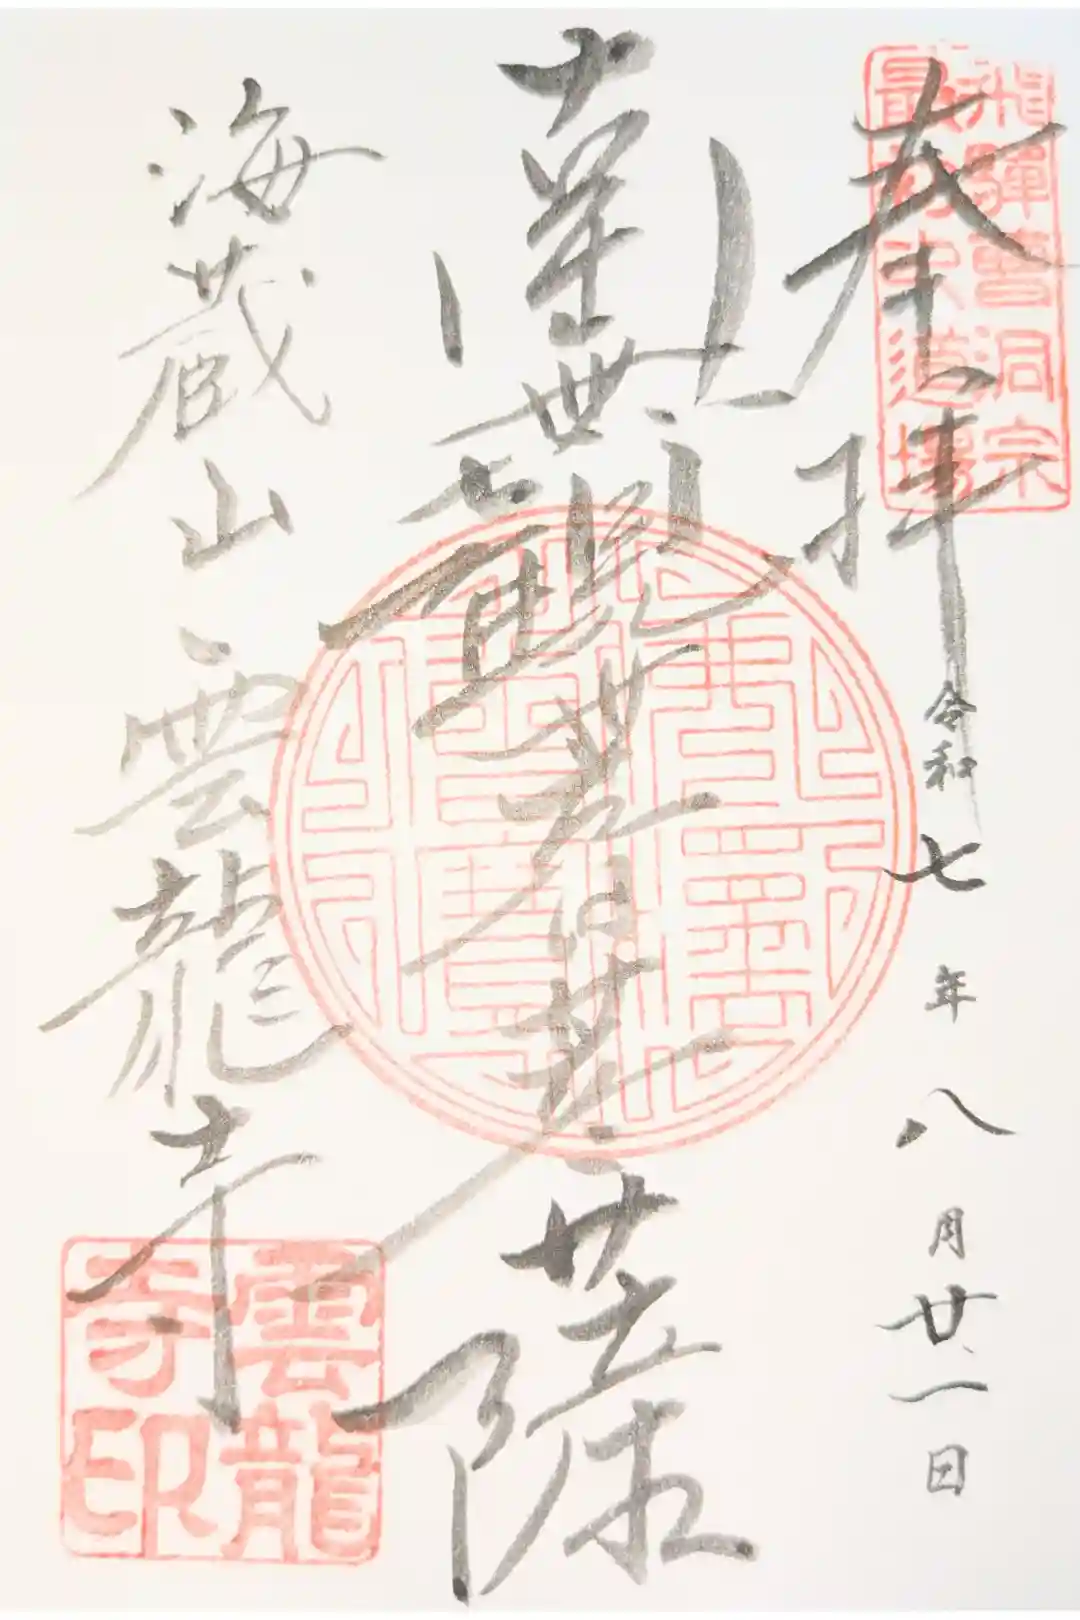 飛驒曹洞宗
最初之道場
奉拝
令和七年八月廿一日
南無観世音菩薩
海蔵山雲龍寺
雲龍
寺印